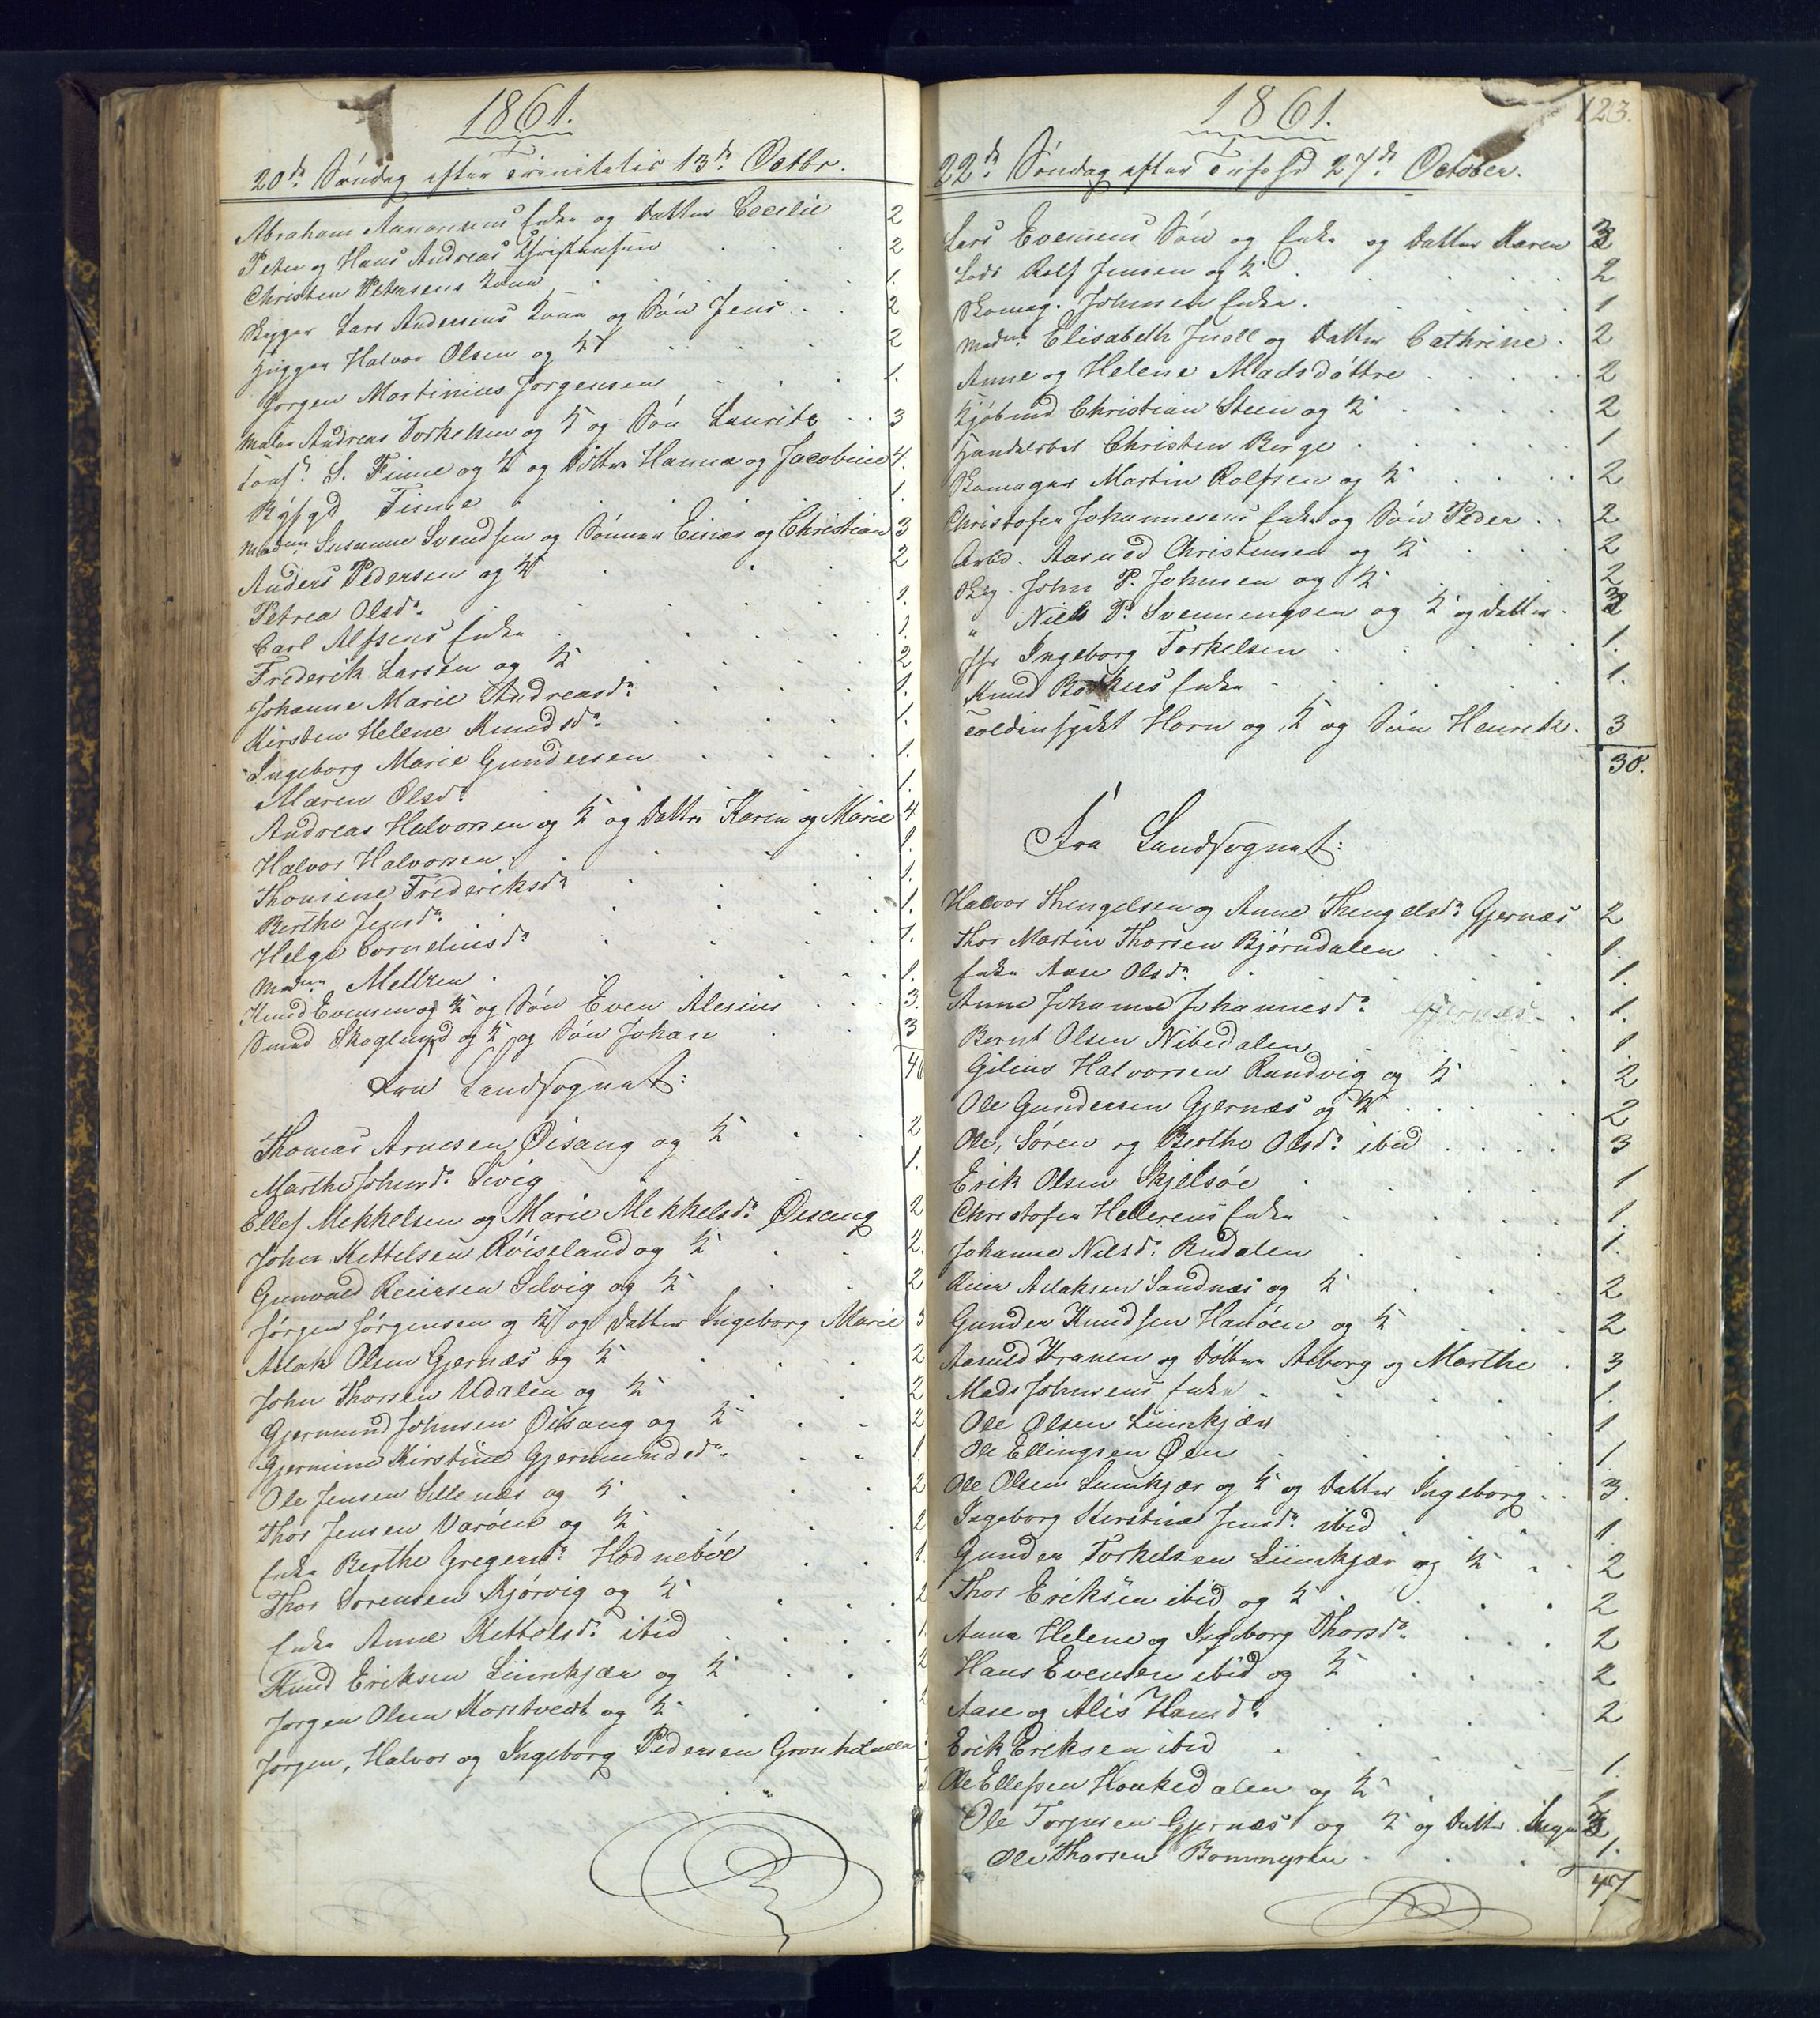 1861.
20de Søndag efter Trinitatis 13de Octbr.
Abraham Aanonsens Enke og Datter Cecilie 2
Peter og Hans Andreas Christensen 2
Christen Petersens Kone 1.
Bygger Lars Andersens Kone og Søn Jens 2
Halvor Olsen og K 2
Jørgen Martinius Jørgensen 1.
Maler Andreas Torkelsen og K og Søn Lauritz 3
Cons. S. Finne og K og Døttre Hanna og Jacobine 4.
Byfgd Finne 1.
Madm Susanne Svendsen og Sønner Einar og Christian 3
Anders Pedersen og K 2
Petrea Olsdr 1.
Carl Alfsens Enke 1.
Frederik Larsen og K 2
Johanne Marie Andreasdr 1.
Kirsten Helene Knudsdr 1.
Ingeborg Marie Gundersen 1.
Maren Olsdr 1.
Andreas Halvorsen og K og Dattre Karen og Marie 4
Halvor Halvorsen 1.
Thomine Frederiksdr 1.
Berthe Jensdr 1.
Helge Corneliusdr 1.
Madm Meltzen 1.
Knud Evensen og K og Søn Even Alesius 3.
Smed Skoglund og K og Søn Johan 3
46
Fra Landsognet:
Thomas Arnesen Øisang og K 2
Marthe Johnsdr Sivig 1.
Ellef Mekkelsen og Marie Mekkelsdr Øisang 2
John Kettelsen Røiseland og K 2.
Gunvald Reiersen Silvig og K 2
Jørgen Jørgensen og K og Datter Ingeborg Marie 3
Aslak Olsen Gjernæs og K 2
John Thorsen Udalen og K 2
Gjermund Johnsen Øisang og K 2
Gjermine Kirstine Gjermundsdr 1.
Ole Jensen Sillenæs og K 2
Thor Jensen Varøen og K 2
Enke Berthe Gregersdr Hodnebøe 1.
Thor Sørensen Kjørvig og K 2
Enke Anne Kettelsdr ibid 1.
Knud Eriksen Liinkjær og K 2
Jørgen Olsen Korstvedt og K 2
Jørgen, Halvor og Ingeborg Pedersen 3
1861.
123.
22de Søndag efter Trefold 27de October.
Lars Evensens Søn og Enke og Datter Karen 3
Lods Rolf Jensen og K 2
Skomag. Johnsen Enke. 1
Madm Elisabeth Juell og Datter Cathrine. 2
Anne og Helene Madsdøttre 2
Kjøbmd Christian Steen og K 2
Handelsbet Christen Berge 1
Skomager Martin Rolfsen og K 2
Christofer Johannesens Enke og Søn Peder 2
Arbd. Aasuld Christensen og K 2
Byg. John P. Johnsen og K 2
" Niels P. Svenningsen og K og Datter. 3
Jfr Ingeborg Torkelsen 1.
Knud Enke 1.
Toldinspekt Horn og K og Søn Henrik. 3
30.
Fra Landsognet:
Halvor Thengelsen og Anne Thengelsdr Gjernæs 2
Thor Martin Thorsen Bjørndalen 1.
Enke Aase Olsdr 1.
Anne Johanne Johannesdr Gjernæs 1.
Bernt Olsen Nibedalen 1
Gilius Halvorsen Randvig og K 2
Ole Gundersen Gjernæs og K 2
Ole, Søren og Berthe Olsdr ibid 3
Erik Olsen Skjelsøe 1
Christofer Hellerens Enke 1.
Johanne Nilsdr Rudalen 1.
Reier Aslaksen Sandnæs og K 2
Gunder Knudsen Hanøen og K 2
Aasuld Kranen og Døttre Asborg og Marthe 3
Mads Johnsens Enke 1.
Ole Olsen Liinkjær 1
Ole Ellingsen Øen 1.
Ole Olsen Liinkjær og K og Datter Ingeborg 3.
Ingeborg Kirstine Jensdr ibid 1.
Gunder Torkelsen Liinkjær og K 2
Thor Eriksen ibid og K 2
Anna Helene og Ingeborg Thorsdr 2
Hans Evensen ibid og K 2
Aase og Alis Hansdr 2
Erik Eriksen ibid 1.
Ole Ellefsen Haukedalen og K 2
Ole Torjusen Gjernæs og K og Datter 3
Ole Thorsen Bommyren 1.
47